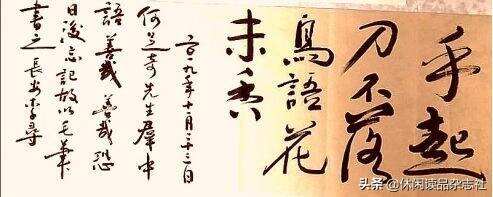 手起
刀不落
鳥語花
未香
二〇一九年十月二十三日
何兰奇先生群中
語善哉善哉恐
日後忘記故以毛筆
書之長安李尋
头条@休闲读品杂志社